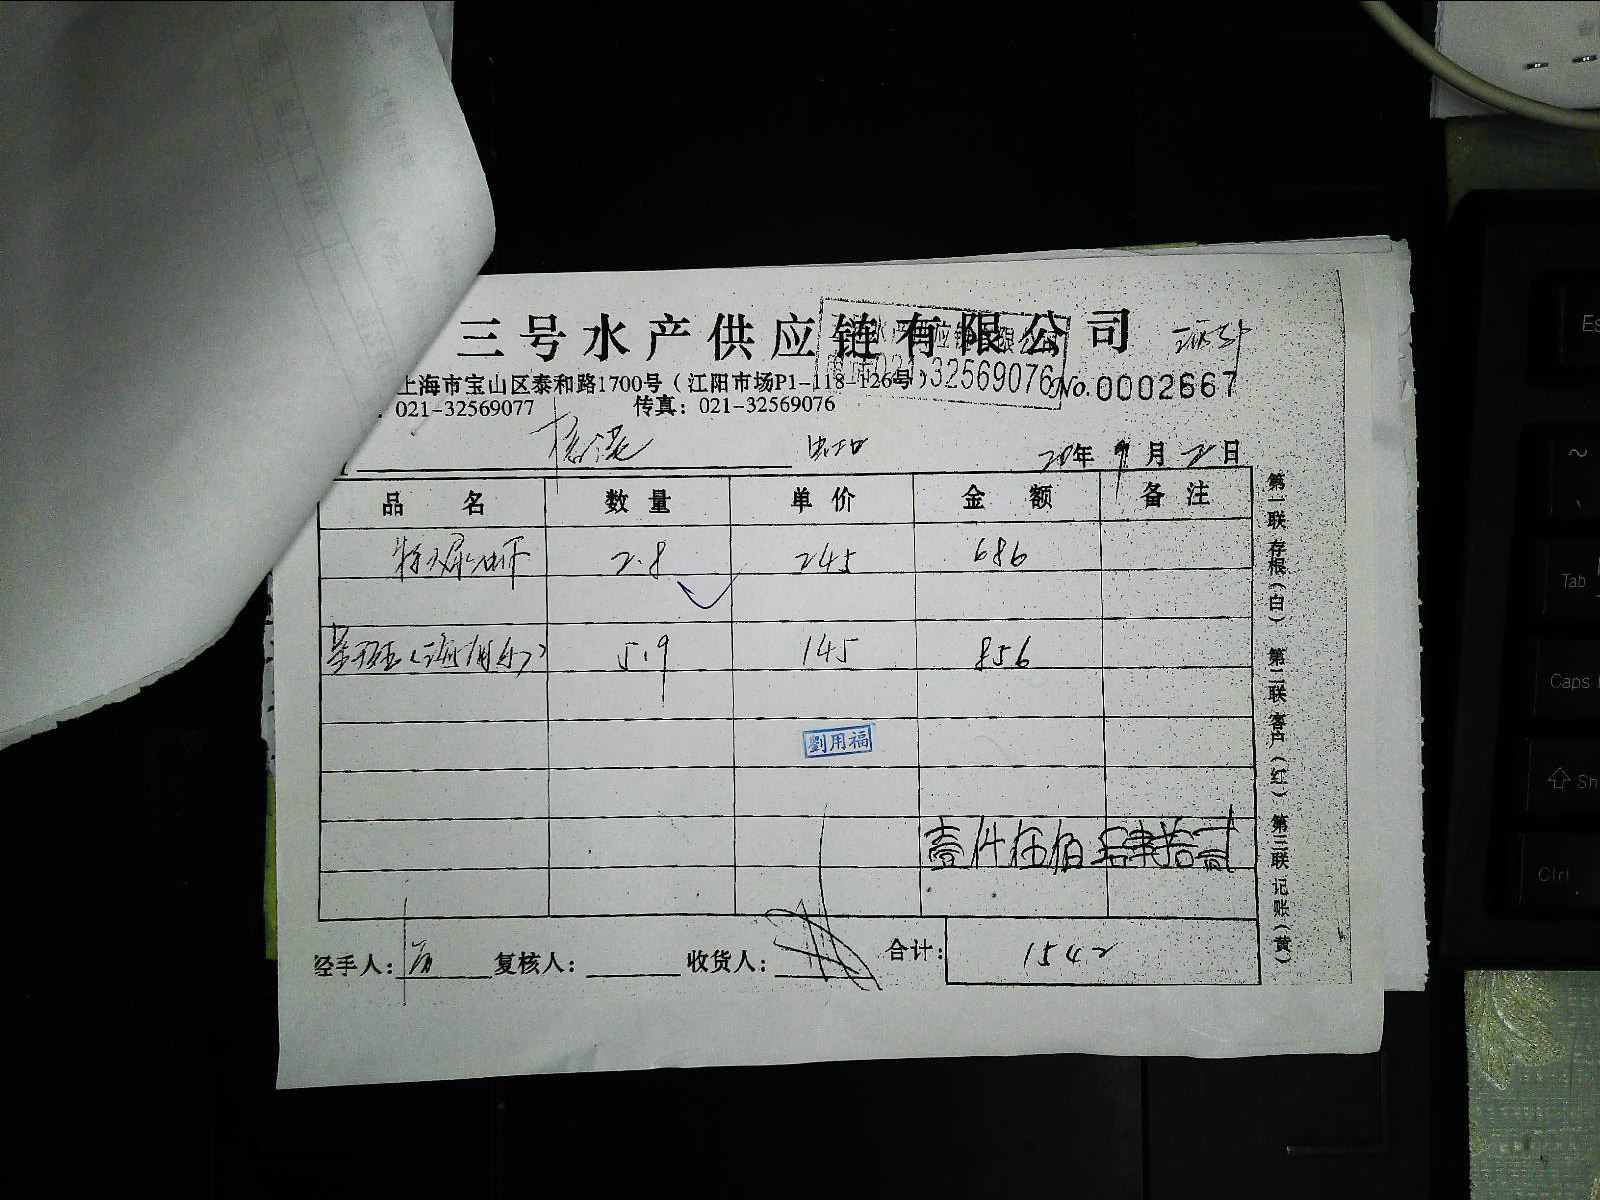 三号水产供应链有限公司
上海市宝山区泰和路1700号(江阳市场P1-118-126号)
32569076
No.0002667
021-32569077 传真:021-32569076
20年9月2日
品名 数量 单价 金额 备注
2.8 245 686
5.9 145 856
劉用福
壹仟伍佰肆拾贰
经手人: 复核人: 收货人: 合计: 1542
第一联存根(白) 第二联客户(红) 第三联记账(黄)
Es
~
Tab
Caps
Sh
Ctrl